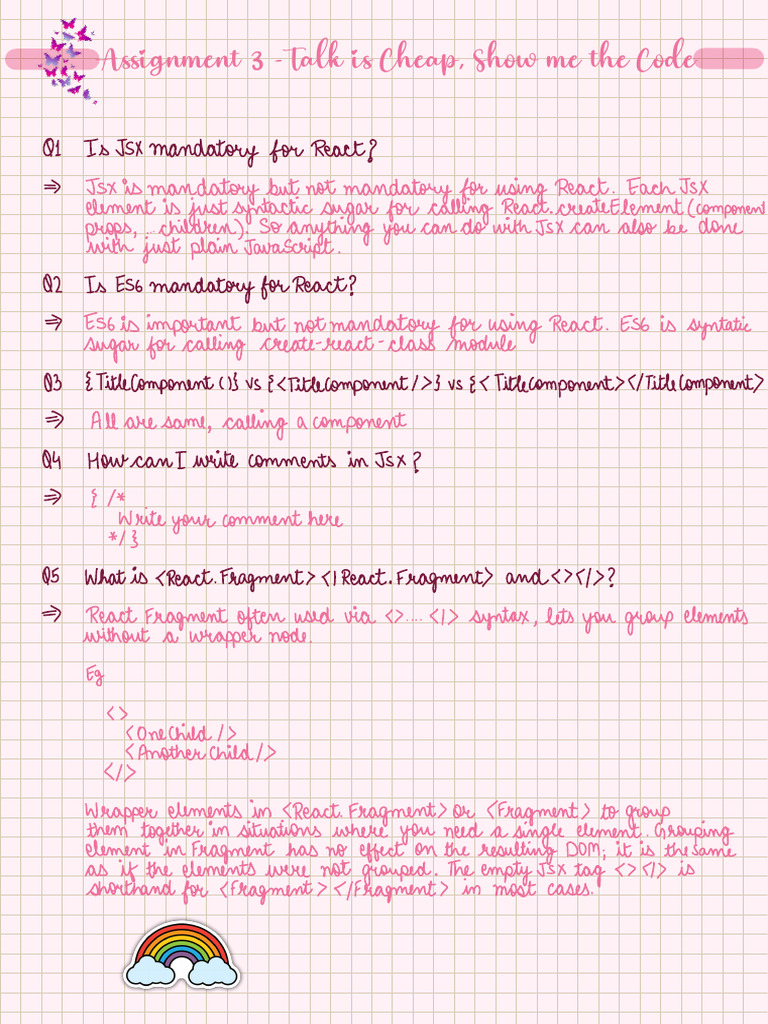 Assignment 3 - Talk is Cheap, Show me the Code
Q1 Is JSX mandatory for React?
⇒ JSX is mandatory but not mandatory for using React. Each JSX
element is just syntactic sugar for calling React.createElement (component
props, ... children). So anything you can do with JSX can also be done
with just plain JavaScript.
Q2 Is ES6 mandatory for React?
⇒ ES6 is important but not mandatory for using React. ES6 is syntatic
sugar for calling create-react-class module
Q3 {TitleComponent ()} vs {<TitleComponent/>} vs {<TitleComponent></TitleComponent>
⇒ All are same, calling a component
Q4 How can I write comments in JSX?
⇒ { /*
Write your comment here
*/ }
Q5 What is <React.Fragment> </React.Fragment> and <></>?
⇒ React Fragment often used via <>....</> syntax, lets you group elements
without a wrapper node.
Eg
<>
<OneChild />
<AnotherChild />
</>
Wrapper elements in <React.Fragment> or <Fragment> to group
them together in situations where you need a single element. Grouping
element in Fragment has no effect on the resulting DOM; it is the same
as if the elements were not grouped. The empty JSX tag <></> is
shorthand for <Fragment></Fragment> in most cases.